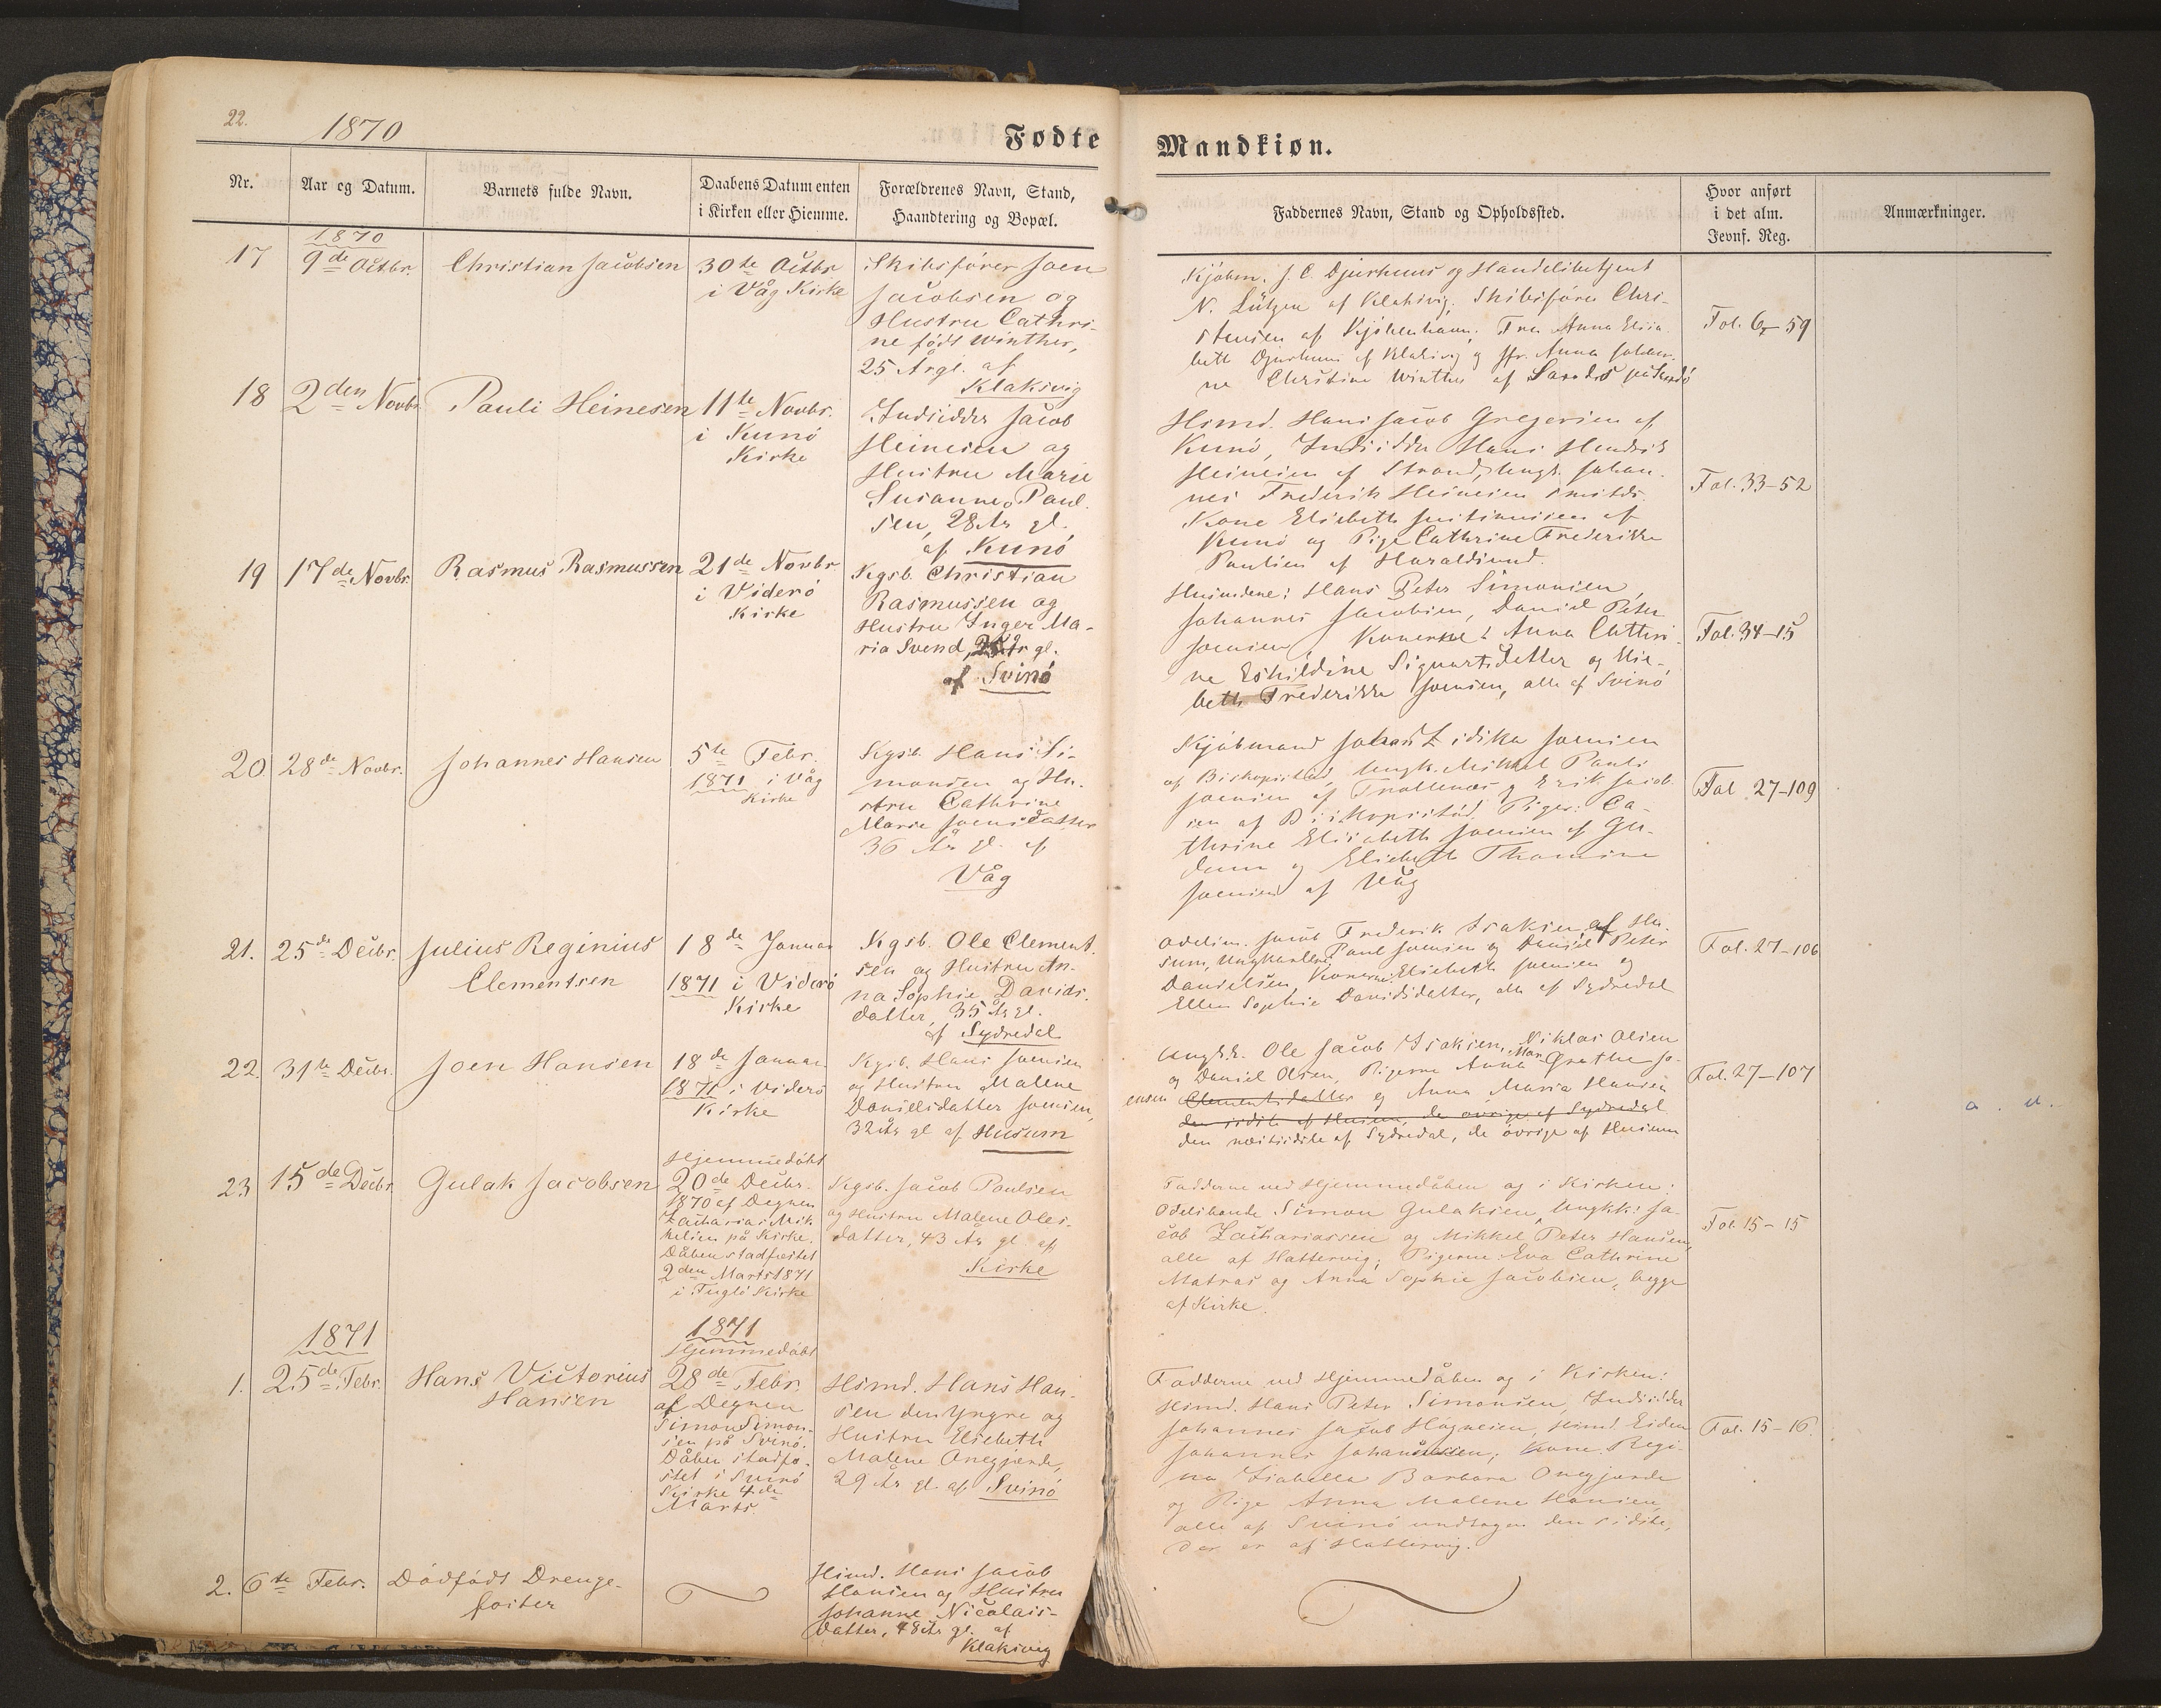 22.
1870
Fødte
Mandkiøn.
Nr.
Aar og Datum.
Barnets fulde Navn.
Daabens Datum enten
i Kirken eller Hiemme.
Forældrenes Navn, Stand,
Haandtering og Bopæl.
Faddernes Navn, Stand og Opholdssted.
Hvor anført
i det alm.
Jevnf. Reg.
Anmærkninger.
1870
17
9de Octbr.
Christian Jacobsen
30te Octbr
i Våg Kirke
Skibsfører Joen
Jacobsen og
Hustru Cathri-
ne født Winther,
25 Årgl. af
Klaksvig
Kjøbm. J. C. Djurhuus og Handelsbetjent
N. Lützen af Klaksvig, Skibsfører Chri-
stensen af Kjöbenhavn, Fru Anna Elisa-
beth Djurhuus af Klaksvig og Jfr. Anna
ne Christine Winther af på Sandö
Fol. 6-59
18
2den Novbr.
Pauli Heinesen
11te Novbr.
i Kunö
Kirke
Indsidder Jacob
Heinesen og
Hustru Marie
Susanne Poul-
sen, 28 År gl.
af Kunö
Hsmd. Hans Jacob Gregersen af
Kunö, Indsidder Hans Hendrik
Heinesen af Strand, Ungk. Johan-
nes Frederik Heinesen smstds.
Kone Elsebeth Justinussen af
Kunö og Pige Cathrine Frederikke
Poulsen af Haraldsund.
Fol. 33-52
19
17de Novbr.
Rasmus Rasmussen
21de Novbr.
i Viderö
Kirke
Kgsb. Christian
Rasmussen og
Hustru Inger Ma-
ria Svend, År gl.
af Svinö
Husmdene: Hans Peter Simonsen,
Johannes Jacobsen, Daniel Peter
Joensen, Konerne: Anna Cathri-
ne Eshildine Sigvartsdatter og Else-
beth Frederikke Joensen, alle af Svinö
Fol. 34-15
20.
28de Novbr.
Johannes Hansen
5te Febr.
1871 i Våg
Kirke
Kgsb. Hans Si-
monsen og Hu-
stru Cathrine
Marie Joensdatter
36 År gl. af
Våg
Kjöbmand Joensen
af Biskopstöd, Ungk. Mikkel Pauli
Joensen af Trollenæs og Erik Jacob-
sen af Biskopsstöd. Piger: Ca-
thrine Elisabeth Joensen af Gu-
dum og Elsebeth Thomine
Joensen af Våg
Fol 27-109
21.
25de Decbr.
Julius Reginius
Clementsen
18de Januar
1871 i Viderö
Kirke
Kgsb. Ole Clement-
sen og Hustru An-
na Sophie Davids-
datter, 35 År gl.
af Sydredal
Odelsm. Jacob Frederik Isaksen af Hu-
sum, Ungkarlene Poul Joensen og Daniel Peter
Danielsen, Konerne: Elsebeth Joensen og
Ellen Sophie Davidsdatter, alle af Sydredal
Fol. 27-106
22.
31te Decbr.
Joen Hansen
18de Januar
1871 i Viderö
Kirke
Kgsb. Hans Joensen
og Hustru Malene
Danielsdatter Joensen,
32 År gl af Husum
Ungkk. Ole Jacob Isaksen, Niklas Olsen
og Daniel Olsen, Pigerne Anna Mar. Grethe Jo-
ensen Clementsdatter og Anna Maria Hansen
den sidste af Husum, de övrige af Sydredal
den næstsidste af Sydredal, de övrige af Husum
Fol. 27-107
a. d.
23
15de Decbr
Gulak Jacobsen
Hjemmedöbt
20de Decbr.
1870 af Degnen
Zacharias Mik-
kelsen på Kirke.
Dåben stadfæstet
2den Marts 1871
i Fuglö Kirke
Kgsb. Jacob Poulsen
og Hustru Malene Oles-
datter, 43 År gl af
Kirke
Fadderne ved Hjemmedåben og i Kirken:
Odelsbonde Simon Gulaksen, Ungkk: Ja-
cob Zachariassen og Mikkel Peter Hansen,
alle af Hattervig; Pigerne: Eva Cathrine
Matras og Anna Sophie Jacobsen, begge
af Kirke.
Fol. 15-15
1871
1.
25de Febr.
Hans Victorius
Hansen
1871
Hjemmedöbt
28de Febr.
af Degnen
Simon Simon-
sen på Svinö.
Dåben stadfæ-
stet i Svinö
Kirke 4de
Marts.
Hsmd. Hans Han-
sen den Yngre og
Hustru Elsebeth
Malene Önegjærde,
29 År gl. af Svinö
Fadderne ved Hjemmedåben og i Kirken:
Hsmd. Hans Peter Simonsen, Indsidder
Johannes Jacob Högnesen, Hsmd Eiden
Johannes Johannesen; Kone Regi-
na Isabella Barbara Önegjærde
og Pige Anna Malene Hansen,
alle af Svinö undtagen den sidste,
der er af Hattervig.
Fol. 15-16.
2.
6te Febr.
Dödfödt Drenge-
foster
Hsmd. Hans Jacob
Hansen og Hustru
Johanne Nicolais-
datter, 48 År gl. af
Klaksvig